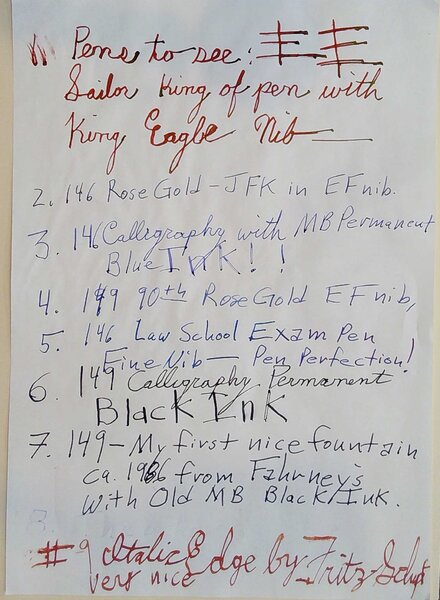 Pens to see:
Sailor King of pen with
King Eagle Nib
2. 146 Rose Gold - JFK in EF nib.
3. 146 Calligraphy with MB Permanent
Blue Ink!!
4. 149 90th Rose Gold EF nib,
5. 146 Law School Exam Pen
Fine Nib — Pen Perfection!
6. 149 Calligraphy Permanent
Black Ink
7. 149 - My first nice fountain
ca. 1986 from Fahrney's
with Old MB Black Ink.
8.
#9 Italic Edge by Fritz-Schimpf
very nice